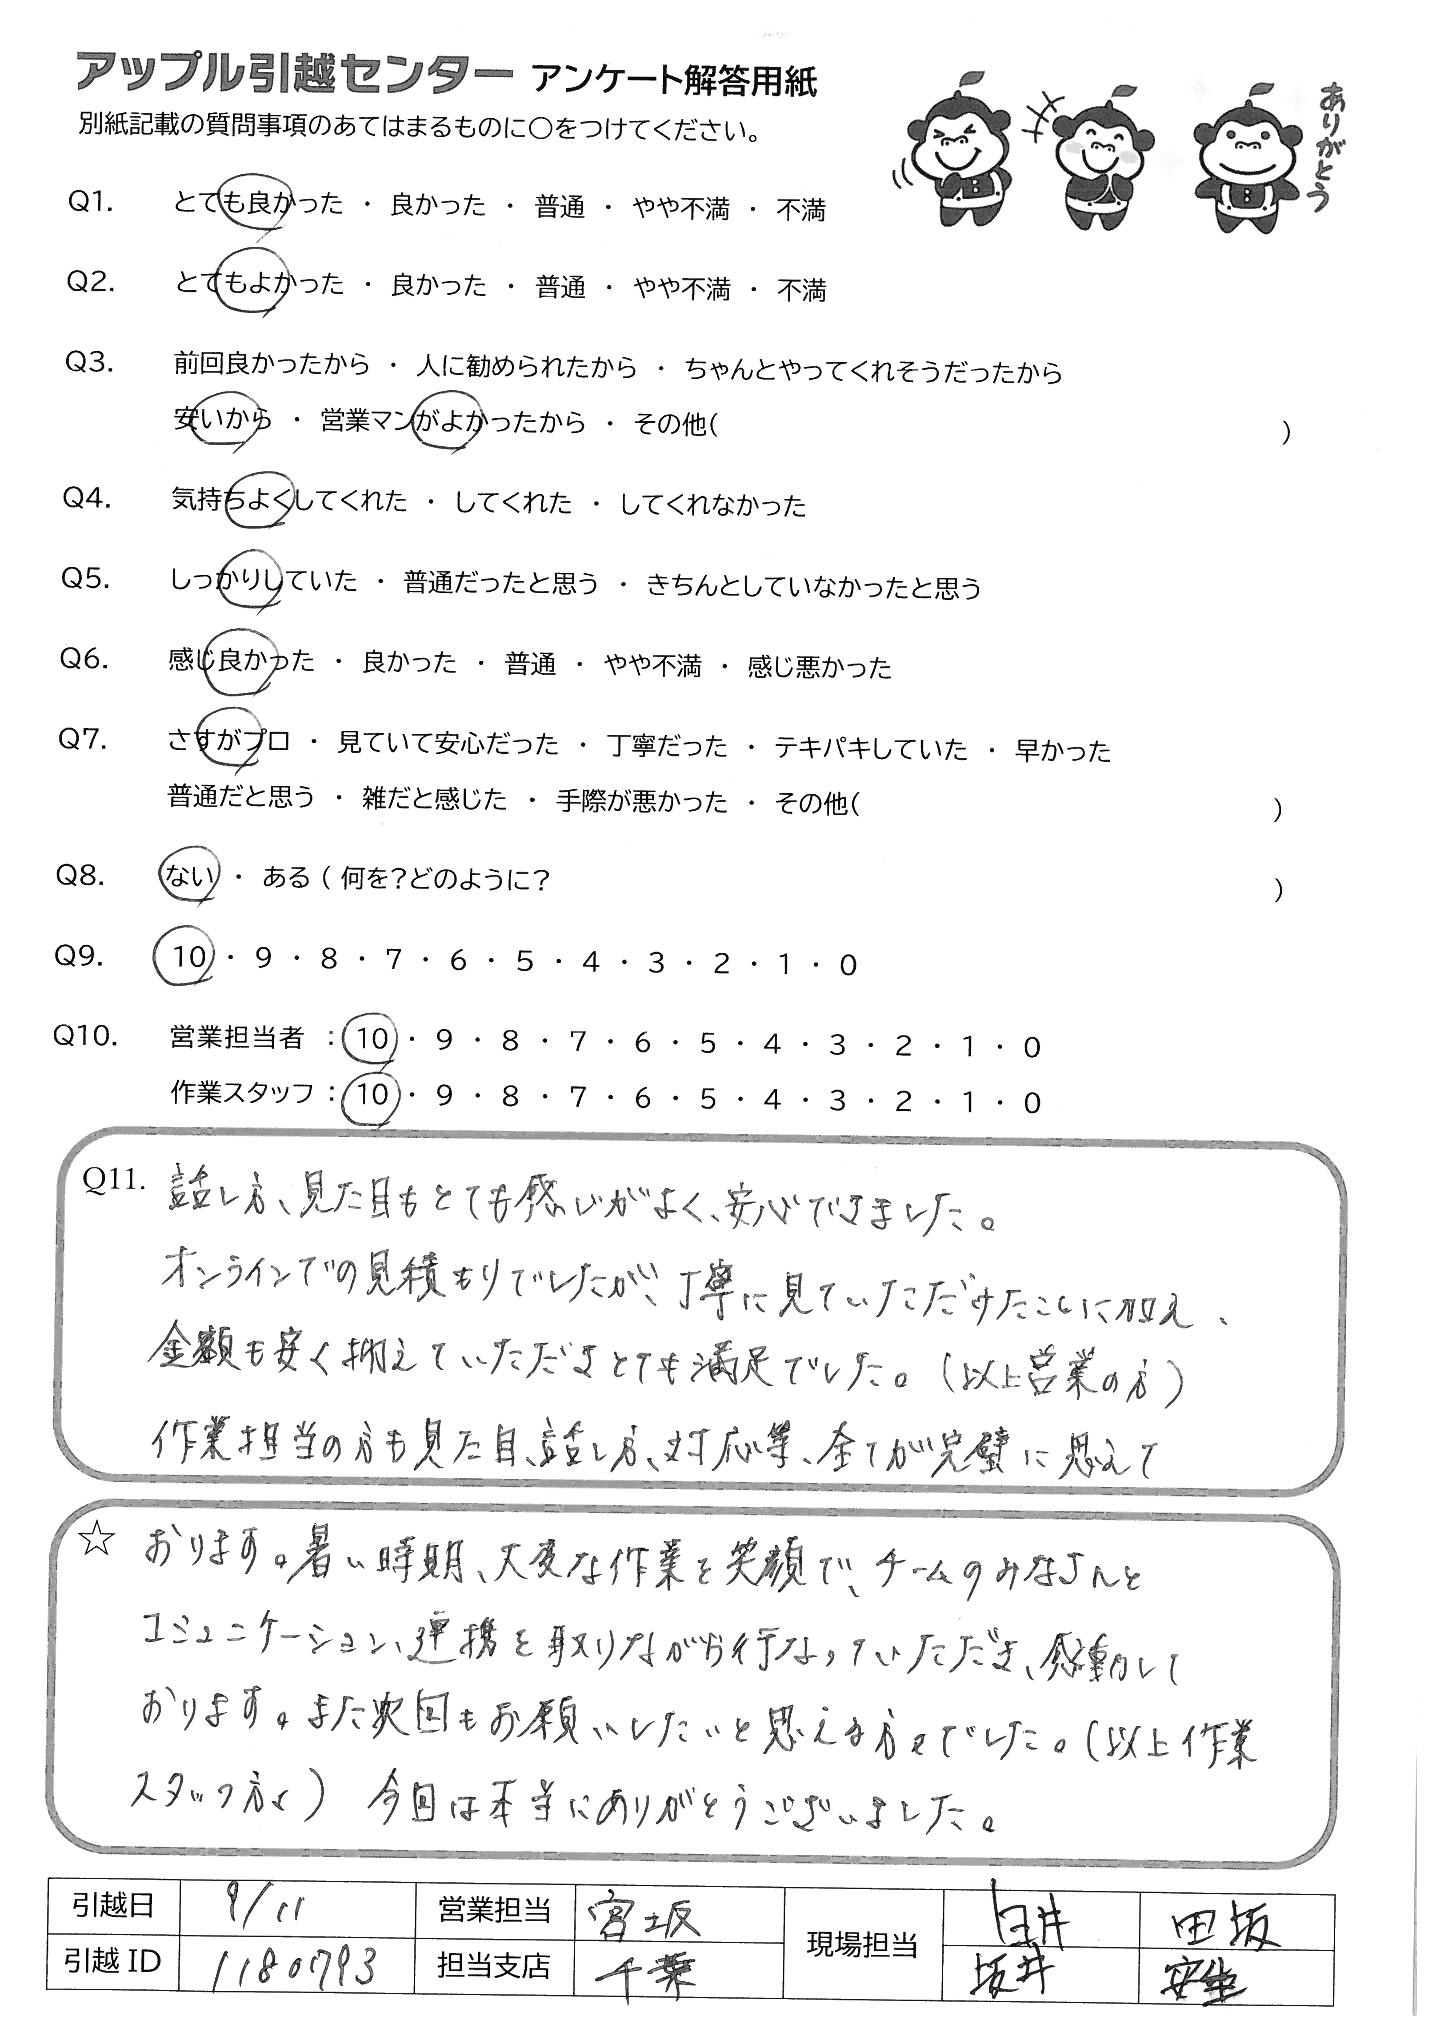 アップル引越センター アンケート解答用紙
ありがとう
別紙記載の質問事項のあてはまるものに○をつけてください。
Q1. とても良かった ・ 良かった ・ 普通 ・ やや不満 ・ 不満
Q2. とてもよかった ・ 良かった ・ 普通 ・ やや不満 ・ 不満
Q3. 前回良かったから ・ 人に勧められたから ・ ちゃんとやってくれそうだったから
安いから ・ 営業マンがよかったから ・ その他( )
Q4. 気持ちよくしてくれた ・ してくれた ・ してくれなかった
Q5. しっかりしていた ・ 普通だったと思う ・ きちんとしていなかったと思う
Q6. 感じ良かった ・ 良かった ・ 普通 ・ やや不満 ・ 感じ悪かった
Q7. さすがプロ ・ 見ていて安心だった ・ 丁寧だった ・ テキパキしていた ・ 早かった
普通だと思う ・ 雑だと感じた ・ 手際が悪かった ・ その他( )
Q8. ない ・ ある ( 何を?どのように? )
Q9. 10 ・ 9 ・ 8 ・ 7 ・ 6 ・ 5 ・ 4 ・ 3 ・ 2 ・ 1 ・ 0
Q10. 営業担当者 : 10 ・ 9 ・ 8 ・ 7 ・ 6 ・ 5 ・ 4 ・ 3 ・ 2 ・ 1 ・ 0
作業スタッフ : 10 ・ 9 ・ 8 ・ 7 ・ 6 ・ 5 ・ 4 ・ 3 ・ 2 ・ 1 ・ 0
Q11. 話し方、見た目もとても感じがよく、安心できました。
オンラインでの見積もりでしたが、丁寧に見ていただけたことに加え、
金額も安く抑えていただきとても満足でした。(以上営業の方)
作業担当の方も見た目、話し方、対応等、全てが完璧に思えて
☆ おります。暑い時期、大変な作業を笑顔で、チームのみなさんと
コミュニケーション、連携を取りながら行なっていただき、感動して
おります。また次回もお願いしたいと思える方々でした。(以上作業
スタッフ方々) 今回は本当にありがとうございました。
引越日 9/11 営業担当 宮坂 現場担当 臼井 田坂
引越ID 1180793 担当支店 千葉 坂井 安生